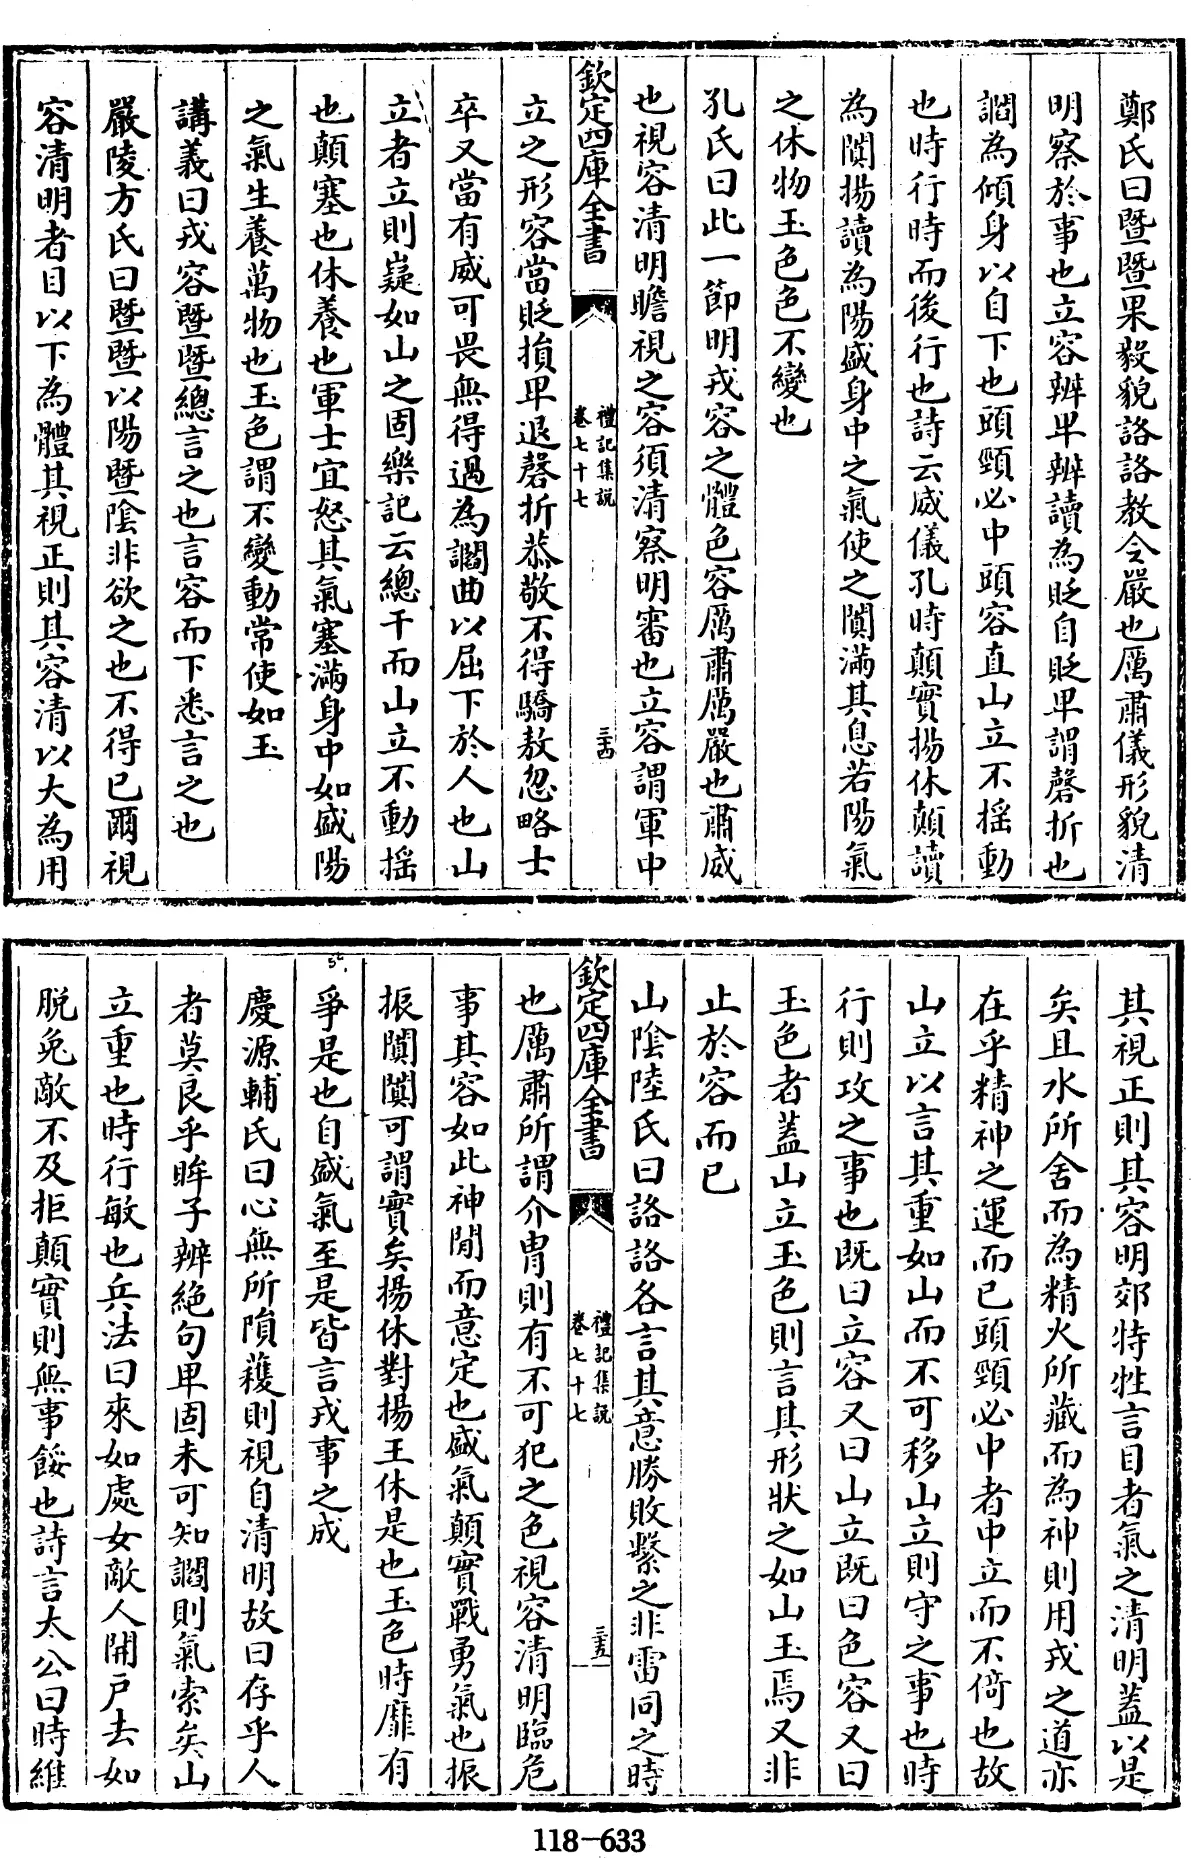 鄭氏曰暨暨果毅貌詻詻教令嚴也厲肅儀形貌清
明察於事也立容辨卑辨讀為貶自貶卑謂磬折也
讇為傾身以自下也頭頸必中頭容直山立不搖動
也時行時而後行也詩云威儀孔時顛實揚休顛讀
為闐揚讀為陽盛身中之氣使之闐滿其息若陽氣
之休物玉色色不變也
孔氏曰此一節明戎容之體色容厲肅厲嚴也肅威
也視容清明瞻視之容須清察明審也立容謂軍中
欽定四庫全書
禮記集説
卷七十七
三十四
立之形容當貶損卑退磬折恭敬不得驕敖忽略士
卒又當有威可畏無得過為讇曲以屈下於人也山
立者立則嶷如山之固樂記云總干而山立不動搖
也顛塞也休養也軍士宜怒其氣塞滿身中如盛陽
之氣生養萬物也玉色謂不變動常使如玉
講義曰戎容暨暨總言之也言容而下悉言之也
嚴陵方氏曰暨暨以陽暨陰非欲之也不得已爾視
容清明者目以下為體其視正則其容清以大為用
其視正則其容明郊特牲言目者氣之清明蓋以是
矣且水所舍而為精火所藏而為神則用戎之道亦
在乎精神之運而已頭頸必中者中立而不倚也故
山立以言其重如山而不可移山立則守之事也時
行則攻之事也既曰立容又曰山立既曰色容又曰
玉色者蓋山立玉色則言其形狀之如山玉焉又非
止於容而已
山陰陸氏曰詻詻各言其意勝敗繫之非雷同之時
欽定四庫全書
禮記集説
卷七十七
三十五
也厲肅所謂介胄則有不可犯之色視容清明臨危
事其容如此神閒而意定也盛氣顛實戰勇氣也振
振闐闐可謂實矣揚休對揚王休是也玉色時靡有
爭是也自盛氣至是皆言戎事之成
慶源輔氏曰心無所隕穫則視自清明故曰存乎人
者莫良乎眸子辨絶句卑固未可知讇則氣索矣山
立重也時行敏也兵法曰來如處女敵人開戶去如
脱兔敵不及拒顛實則無事餒也詩言太公曰時維
118-633